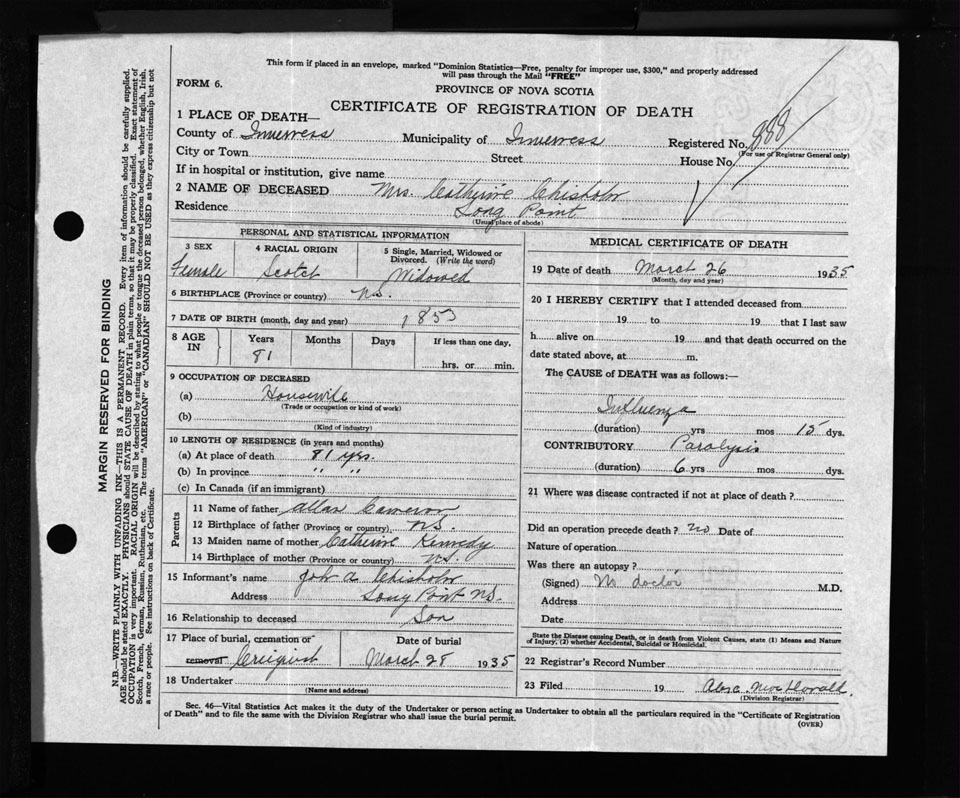 This form if placed in an envelope, marked "Dominion Statistics—Free, penalty for improper use, $300," and properly addressed
will pass through the Mail "FREE"
FORM 6.
PROVINCE OF NOVA SCOTIA
CERTIFICATE OF REGISTRATION OF DEATH
1 PLACE OF DEATH—
County of Inverness Municipality of Inverness Registered No. 888
(For use of Registrar General only)
City or Town Street House No.
If in hospital or institution, give name
2 NAME OF DECEASED Mrs. Catherine Chisholm
Residence Long Point
(Usual place of abode)
PERSONAL AND STATISTICAL INFORMATION
3 SEX 4 RACIAL ORIGIN 5 Single, Married, Widowed or
Divorced. (Write the word)
Female Scotch Widowed
6 BIRTHPLACE (Province or country) N.S.
7 DATE OF BIRTH (month, day and year) 1853
8 AGE IN Years Months Days If less than one day,
81 hrs. or min.
9 OCCUPATION OF DECEASED
(a) Housewife
(Trade or occupation or kind of work)
(b)
(Kind of industry)
10 LENGTH OF RESIDENCE (in years and months)
(a) At place of death 81 yrs.
(b) In province " "
(c) In Canada (if an immigrant)
Parents
11 Name of father Allan Cameron
12 Birthplace of father (Province or country) N.S.
13 Maiden name of mother Catherine Kennedy
14 Birthplace of mother (Province or country) N.S.
15 Informant's name John A Chisholm
Address Long Point N.S.
16 Relationship to deceased Son
17 Place of burial, cremation or Date of burial
removal March 28 1935
18 Undertaker
(Name and address)
MEDICAL CERTIFICATE OF DEATH
19 Date of death March 26 1935
(Month, day and year)
20 I HEREBY CERTIFY that I attended deceased from
19 to 19 that I last saw
h alive on 19 and that death occurred on the
date stated above, at m.
The CAUSE of DEATH was as follows:—
Influenza
(duration) yrs mos 15 dys.
CONTRIBUTORY Paralysis
(duration) 6 yrs mos dys.
21 Where was disease contracted if not at place of death ?
Did an operation precede death ? no Date of
Nature of operation
Was there an autopsy ?
(Signed) doctor M.D.
Address
Date
State the Disease causing Death, or in death from Violent Causes, state (1) Means and Nature
of Injury, (2) whether Accidental, Suicidal or Homicidal.
22 Registrar's Record Number
23 Filed 19
(Division Registrar)
Sec. 46—Vital Statistics Act makes it the duty of the Undertaker or person acting as Undertaker to obtain all the particulars required in the "Certificate of Registration
of Death" and to file the same with the Division Registrar who shall issue the burial permit.
(OVER)
MARGIN RESERVED FOR BINDING
N.B.—WRITE PLAINLY WITH UNFADING INK—THIS IS A PERMANENT RECORD. Every item of information should be carefully supplied.
AGE should be stated EXACTLY. PHYSICIANS should STATE CAUSE OF DEATH in plain terms, so that it may be properly classified. Exact statement of
OCCUPATION is very important. RACIAL ORIGIN will be described by stating to what people or tongue the deceased person belonged, whether English, Irish,
Scotch, French, German, Russian, Ruthenian, etc. The terms "AMERICAN" or "CANADIAN" SHOULD NOT BE USED as they express citizenship but not
a race or people. See instructions on back of Certificate.